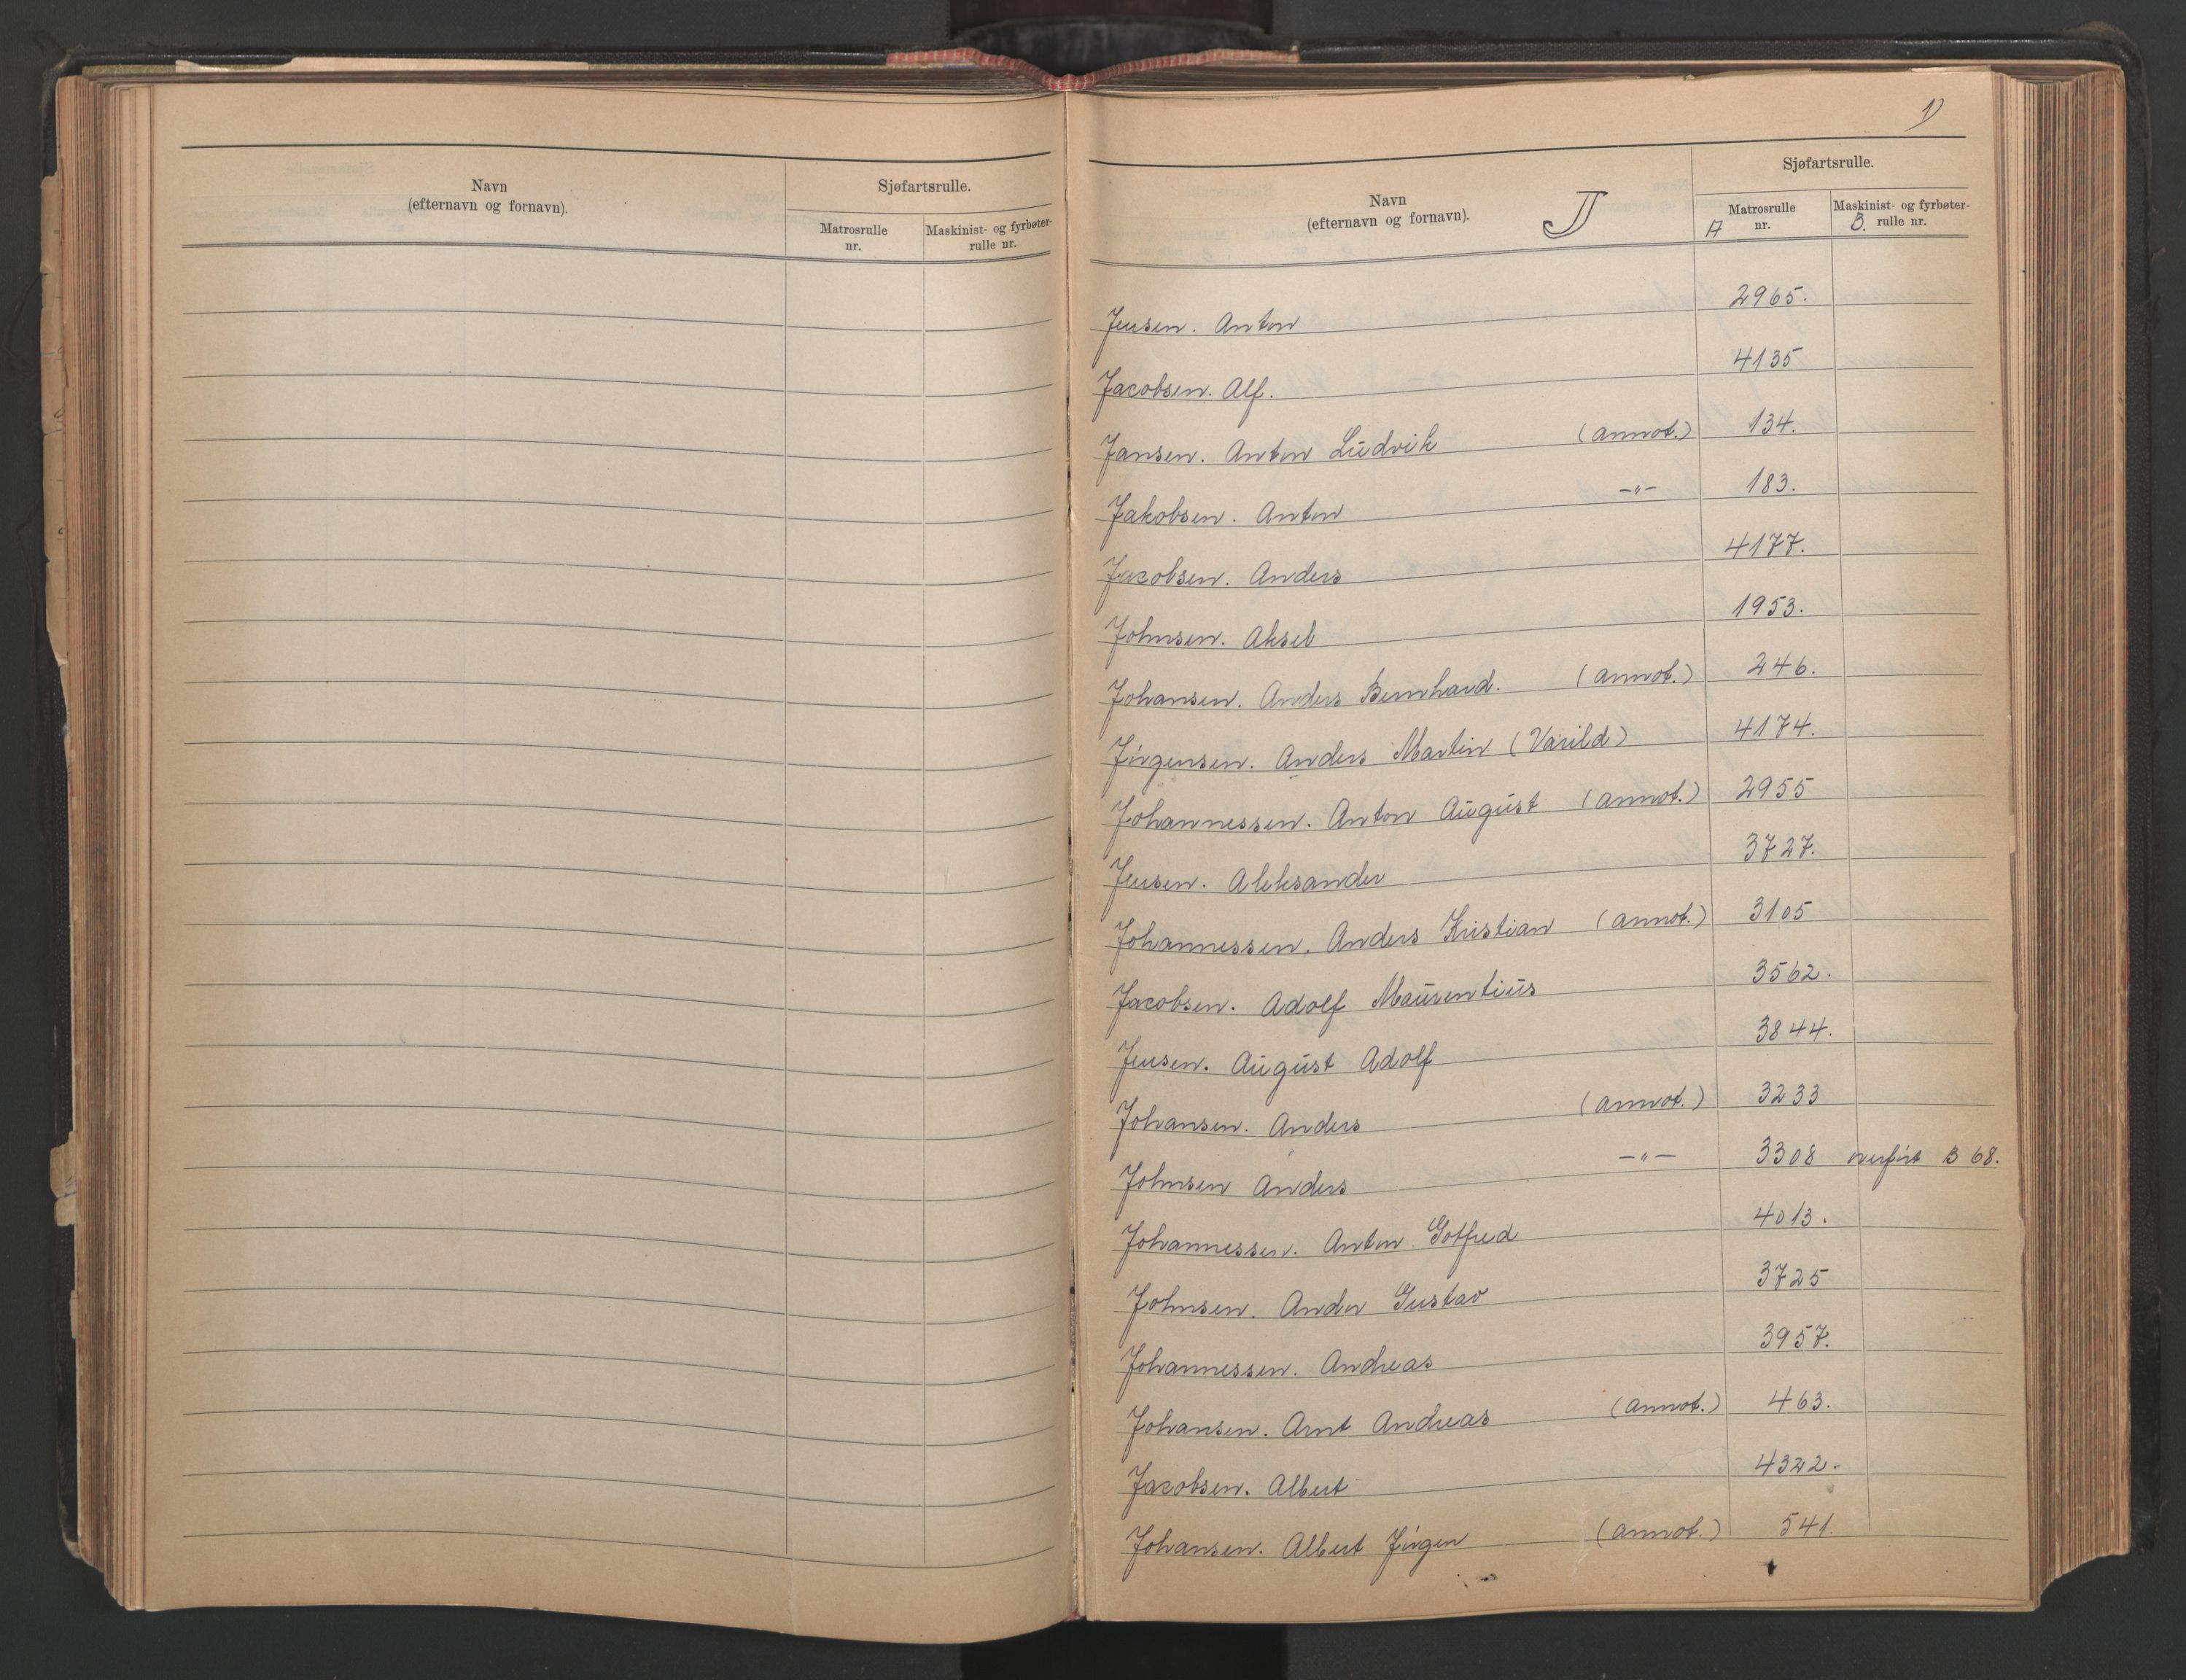 Navn
(efternavn og fornavn).
Sjøfartsrulle.
Matrosrulle
nr.
Maskinist- og fyrbøter-
rulle nr.
1)
Navn
(efternavn og fornavn).
J
Sjøfartsrulle.
A Matrosrulle
nr.
Maskinist- og fyrbøter-
B. rulle nr.
Jensen. Anton 2965.
Jacobsen. Alf. 4135
Jansen. Anton Ludvik (annot.) 134.
Jakobsen. Anton –"– 183.
Jacobsen. Anders 4177.
Johnsen. Aksel 1953.
Johansen. Anders Bernhard. (annot.) 246.
Jörgensen. Anders Martin (Varild) 4174.
Johannessen. Anton August (annot.) 2955
Jensen. Aleksander 3727.
Johannessen. Anders Kristian (annot.) 3105
Jacobsen. Adolf Maurentius 3562.
Jensen. August Adolf 3844.
Johansen. Anders (annot.) 3233
Johnsen Anders –"– 3308 overført B 68.
Johannessen. Anton Gotfred 4013.
Johnsen. Andor Gustav 3725
Johannessen. Andreas 3957.
Johansen. Arnt Andreas (annot.) 463.
Jacobsen. Albert 4322.
Johansen. Albert Jörgen (annot.) 541.